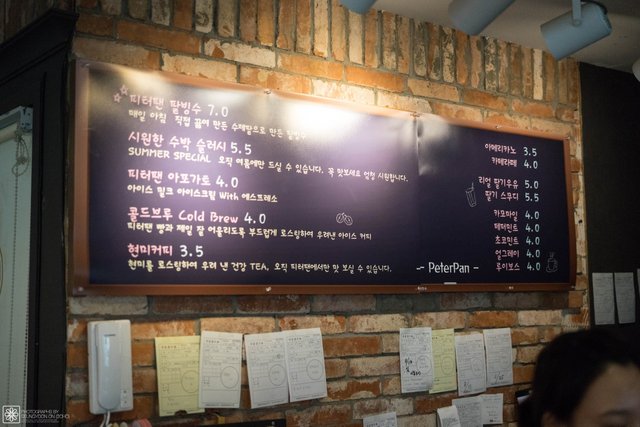 피터팬 팥빙수 7.0
매일 아침 직접 끓여 만든 수제팥으로 만든 팥빙수
시원한 수박 슬러시 5.5
SUMMER SPECIAL 오직 여름에만 드실 수 있습니다. 꼭 맛보세요 엄청 시원합니다.
피터팬 아포가토 4.0
아이스 밀크 아이스크림 With 에스프레소
콜드브루 Cold Brew 4.0
피터팬 빵과 제일 잘 어울리도록 부드럽게 로스팅하여 우려낸 아이스 커피
현미커피 3.5
현미를 로스팅하여 우려 낸 건강 TEA, 오직 피터팬에서만 맛 보실 수 있습니다.
아메리카노 3.5
카페라떼 4.0
리얼 딸기우유 5.0
딸기 스무디 5.5
카모마일 4.0
페퍼민트 4.0
초코민트 4.0
얼그레이 4.0
루이보스 4.0
- PeterPan -
PHOTOGRAPHS BY